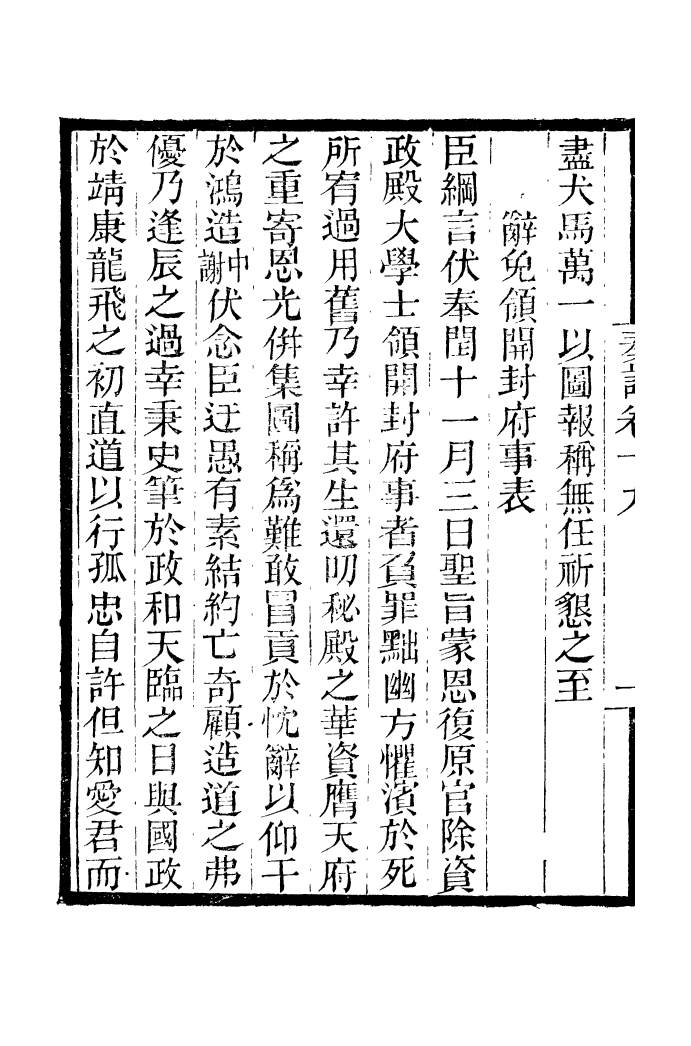 盡犬馬萬一以圖報稱無任祈懇之至
辭免領開封府事表
臣綱言伏奉閏十一月三日聖旨蒙恩復原官除資
政殿大學士領開封府事者負罪黜幽方懼濱於死
所宥過用舊乃幸許其生還叨秘殿之華資膺天府
之重寄恩光併集圖稱爲難敢冒貢於忱辭以仰干
於鴻造中謝伏念臣迂愚有素結約亡奇顧造道之弗
優乃逢辰之過幸秉史筆於政和天臨之日與國政
於靖康龍飛之初直道以行孤忠自許但知愛君而